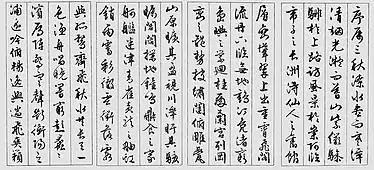 序屬三秋潦水盡而寒潭
清煙光凝而暮山紫儼驂
騑於上路訪風景於崇阿臨
帝子之長洲得仙人之舊館
層巒聳翠上出重霄飛閣
流丹下臨無地鶴汀鳧渚窮
島嶼之縈迴桂殿蘭宮列岡
巒之體勢披繡闥俯雕甍
山原曠其盈視川澤紆其駭
矚閭閻撲地鐘鳴鼎食之家
舸艦迷津青雀黃龍之軸虹
銷雨霽彩徹雲衢落霞
與孤鶩齊飛秋水共長天一
色漁舟唱晚響窮彭蠡之
濱雁陣驚寒聲斷衡陽之
浦遙吟俯暢逸興遄飛爽籟